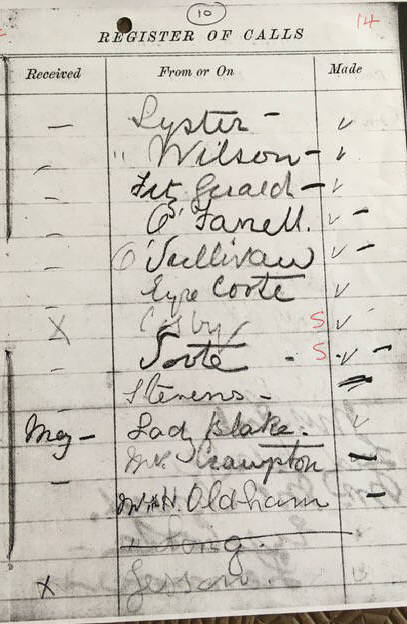 10
14
REGISTER OF CALLS
Received From or On Made
— Lyster –
— " Wilson –
— FitzGerald –
— O'Farrell.
— O'Sullivan
— Eyre Coote
X Cosby S
— Foote - S
— Stevens –
May – Lady Blake.
Mrs Crampton
— Mr & H. Oldham
"
X Lesson.